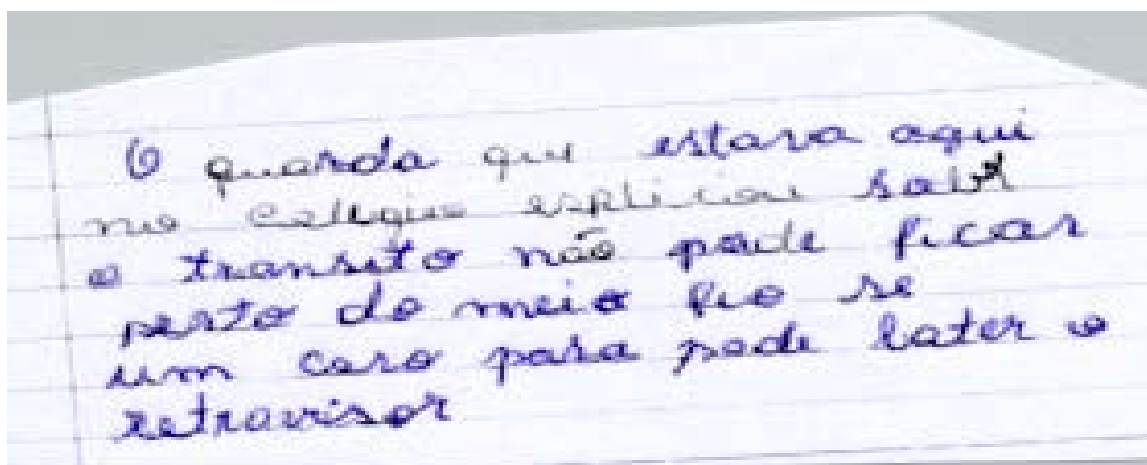 O guarda que estava aqui
no colegio esplicou sobre
o transito não pode ficar
perto do meio fio se
um caro pasa pode bater o
retravisor